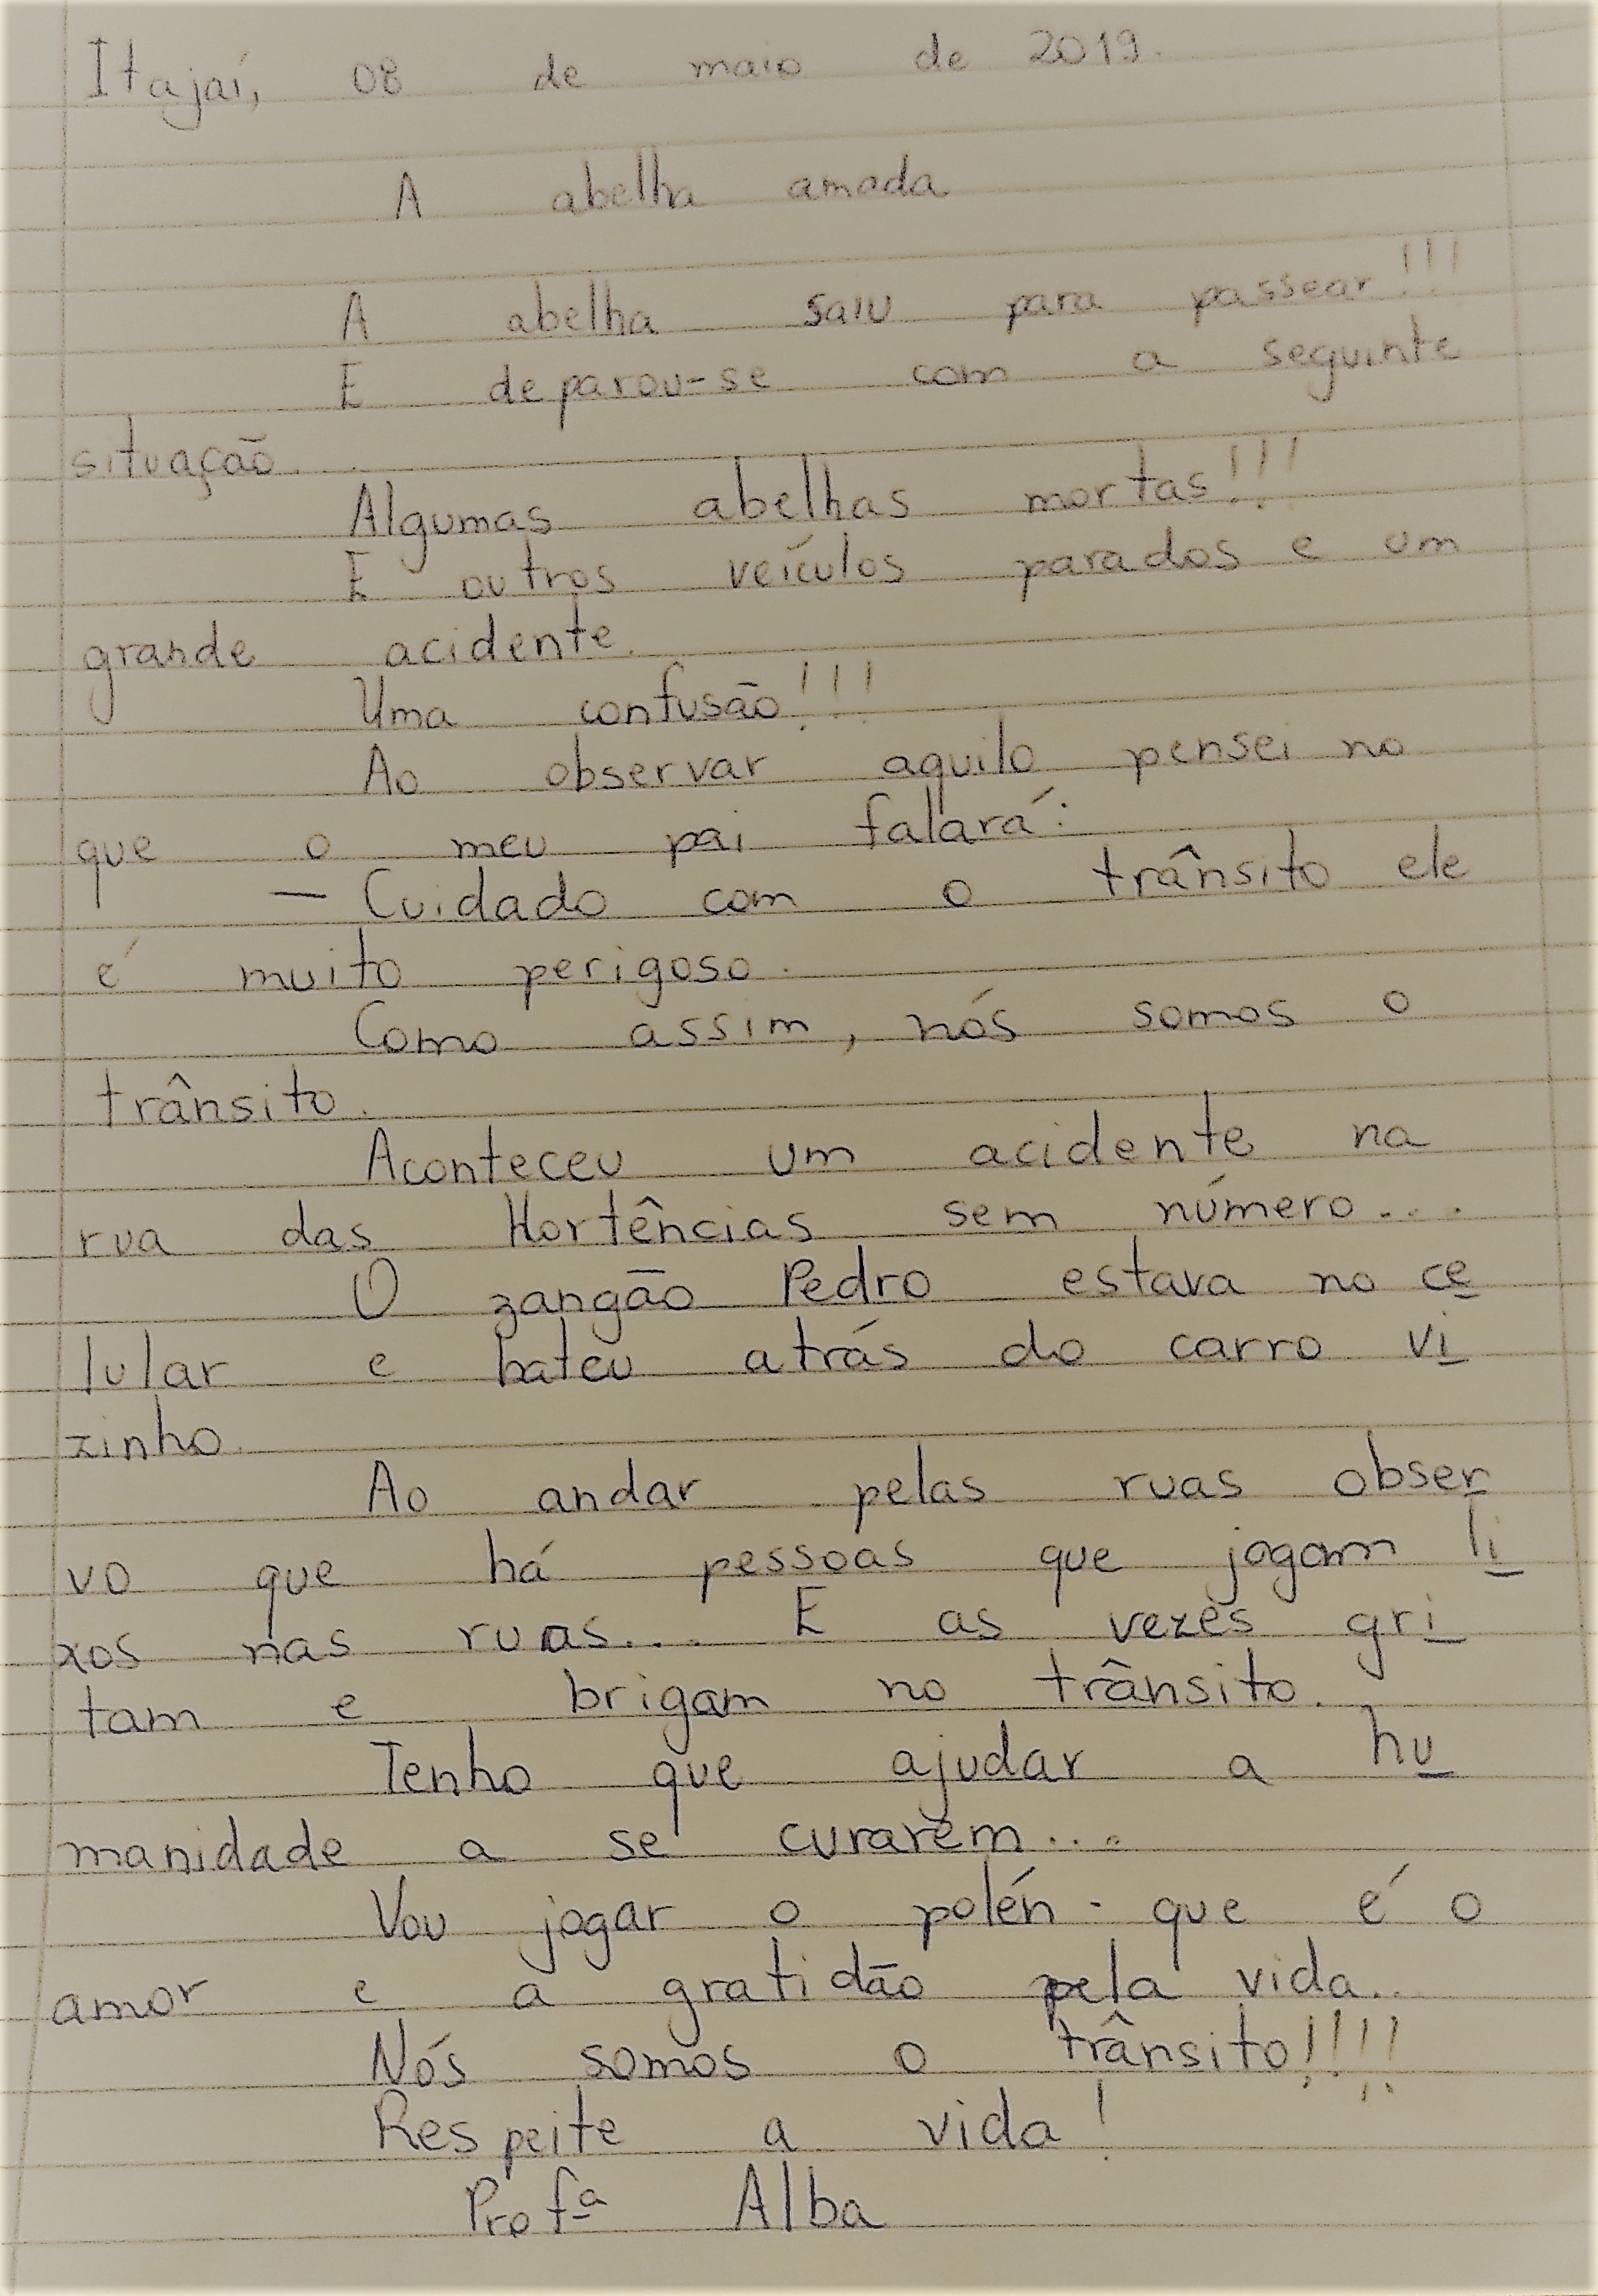 Itajaí, 08 de maio de 2019.
A abelha amada
A abelha saiu para passear!!!
E deparou-se com a seguinte
situação...
Algumas abelhas mortas!!!
E outros veículos parados e um
grande acidente.
Uma confusão!!!
Ao observar aquilo pensei no
que o meu pai falará:
— Cuidado com o trânsito ele
é muito perigoso.
Como assim, nós somos o
trânsito.
Aconteceu um acidente na
rua das Hortências sem número....
O zangão Pedro estava no ce
lular e bateu atrás do carro vi
zinho.
Ao andar pelas ruas obser
vo que há pessoas que jogam li
xos nas ruas.... E as vezes gri
tam e brigam no trânsito.
Tenho que ajudar a hu
manidade a se curarem....
Vou jogar o polén - que é o
amor e a gratidão pela vida...
Nós somos o trânsito!!!!
Respeite a vida!
Profª Alba